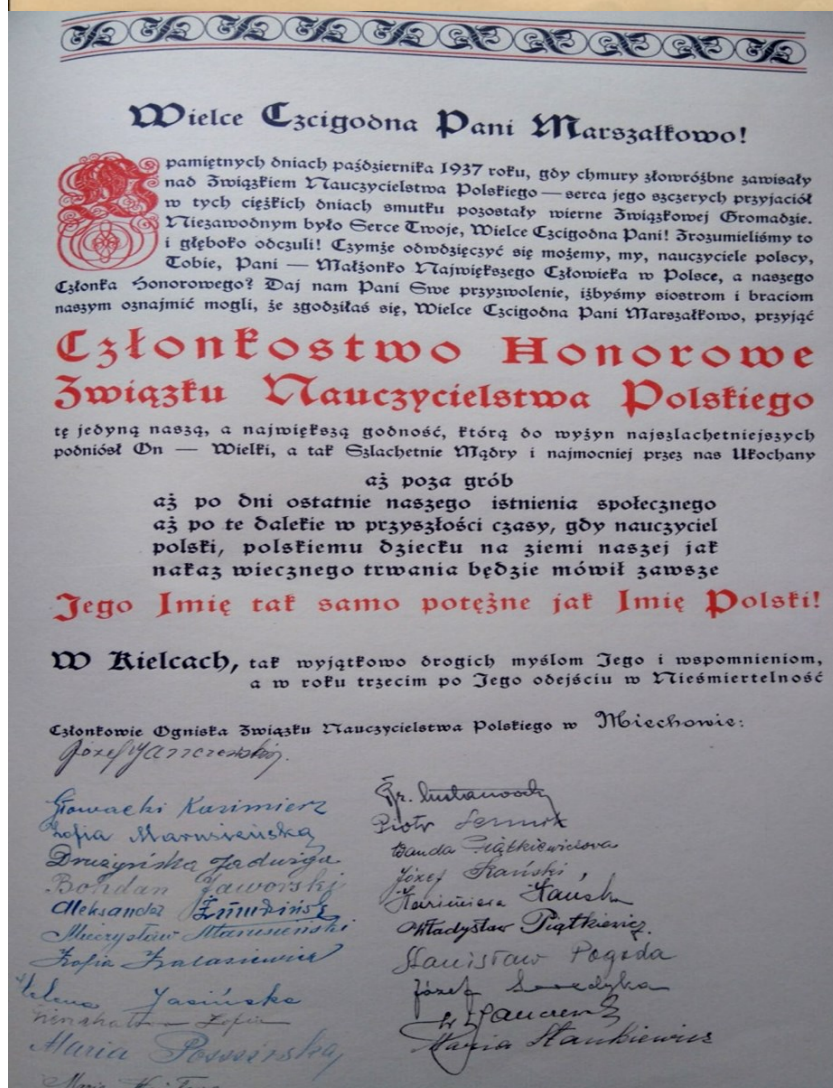 Wielce Czcigodna Pani Marszałkowo!
W pamiętnych dniach października 1937 roku, gdy chmury złowróżbne zawisały
nad Związkiem Nauczycielstwa Polskiego — serca jego szczerych przyjaciół
w tych ciężkich dniach smutku pozostały wierne Związkowej Gromadzie.
Niezawodnym było Serce Twoje, Wielce Czcigodna Pani! Zrozumieliśmy to
i głęboko odczuli! Czymże odwdzięczyć się możemy, my, nauczyciele polscy,
Tobie, Pani — Małżonko Największego Człowieka w Polsce, a naszego
Członka Honorowego? Daj nam Pani Swe przyzwolenie, iżbyśmy siostrom i braciom
naszym oznajmić mogli, że zgodziłaś się, Wielce Czcigodna Pani Marszałkowo, przyjąć
Członkostwo Honorowe
Związku Nauczycielstwa Polskiego
tę jedyną naszą, a największą godność, którą do wyżyn najszlachetniejszych
podniósł On — Wielki, a tak Szlachetnie Mądry i najmocniej przez nas Ukochany
aż poza grób
aż po dni ostatnie naszego istnienia społecznego
aż po te dalekie w przyszłości czasy, gdy nauczyciel
polski, polskiemu dziecku na ziemi naszej jak
nakaz wiecznego trwania będzie mówił zawsze
Jego Imię tak samo potężne jak Imię Polski!
W Kielcach, tak wyjątkowo drogich myślom Jego i wspomnieniom,
a w roku trzecim po Jego odejściu w Nieśmiertelność
Członkowie Ogniska Związku Nauczycielstwa Polskiego w Miechowie:
Józef Janczewski
Głowacki Kazimierz
Zofia Maruszeńska
Drużyńska Jadwiga
Bohdan Jaworski
Aleksander
Mieczysław
Zofia
Helena Jasińska
Zofia
Maria
Maria
Piotr
Wanda Piątkiewiczowa
Józef
Kazimiera
Władysław Piątkiewicz.
Stanisław Pogoda
Józef
Maria Stankiewicz